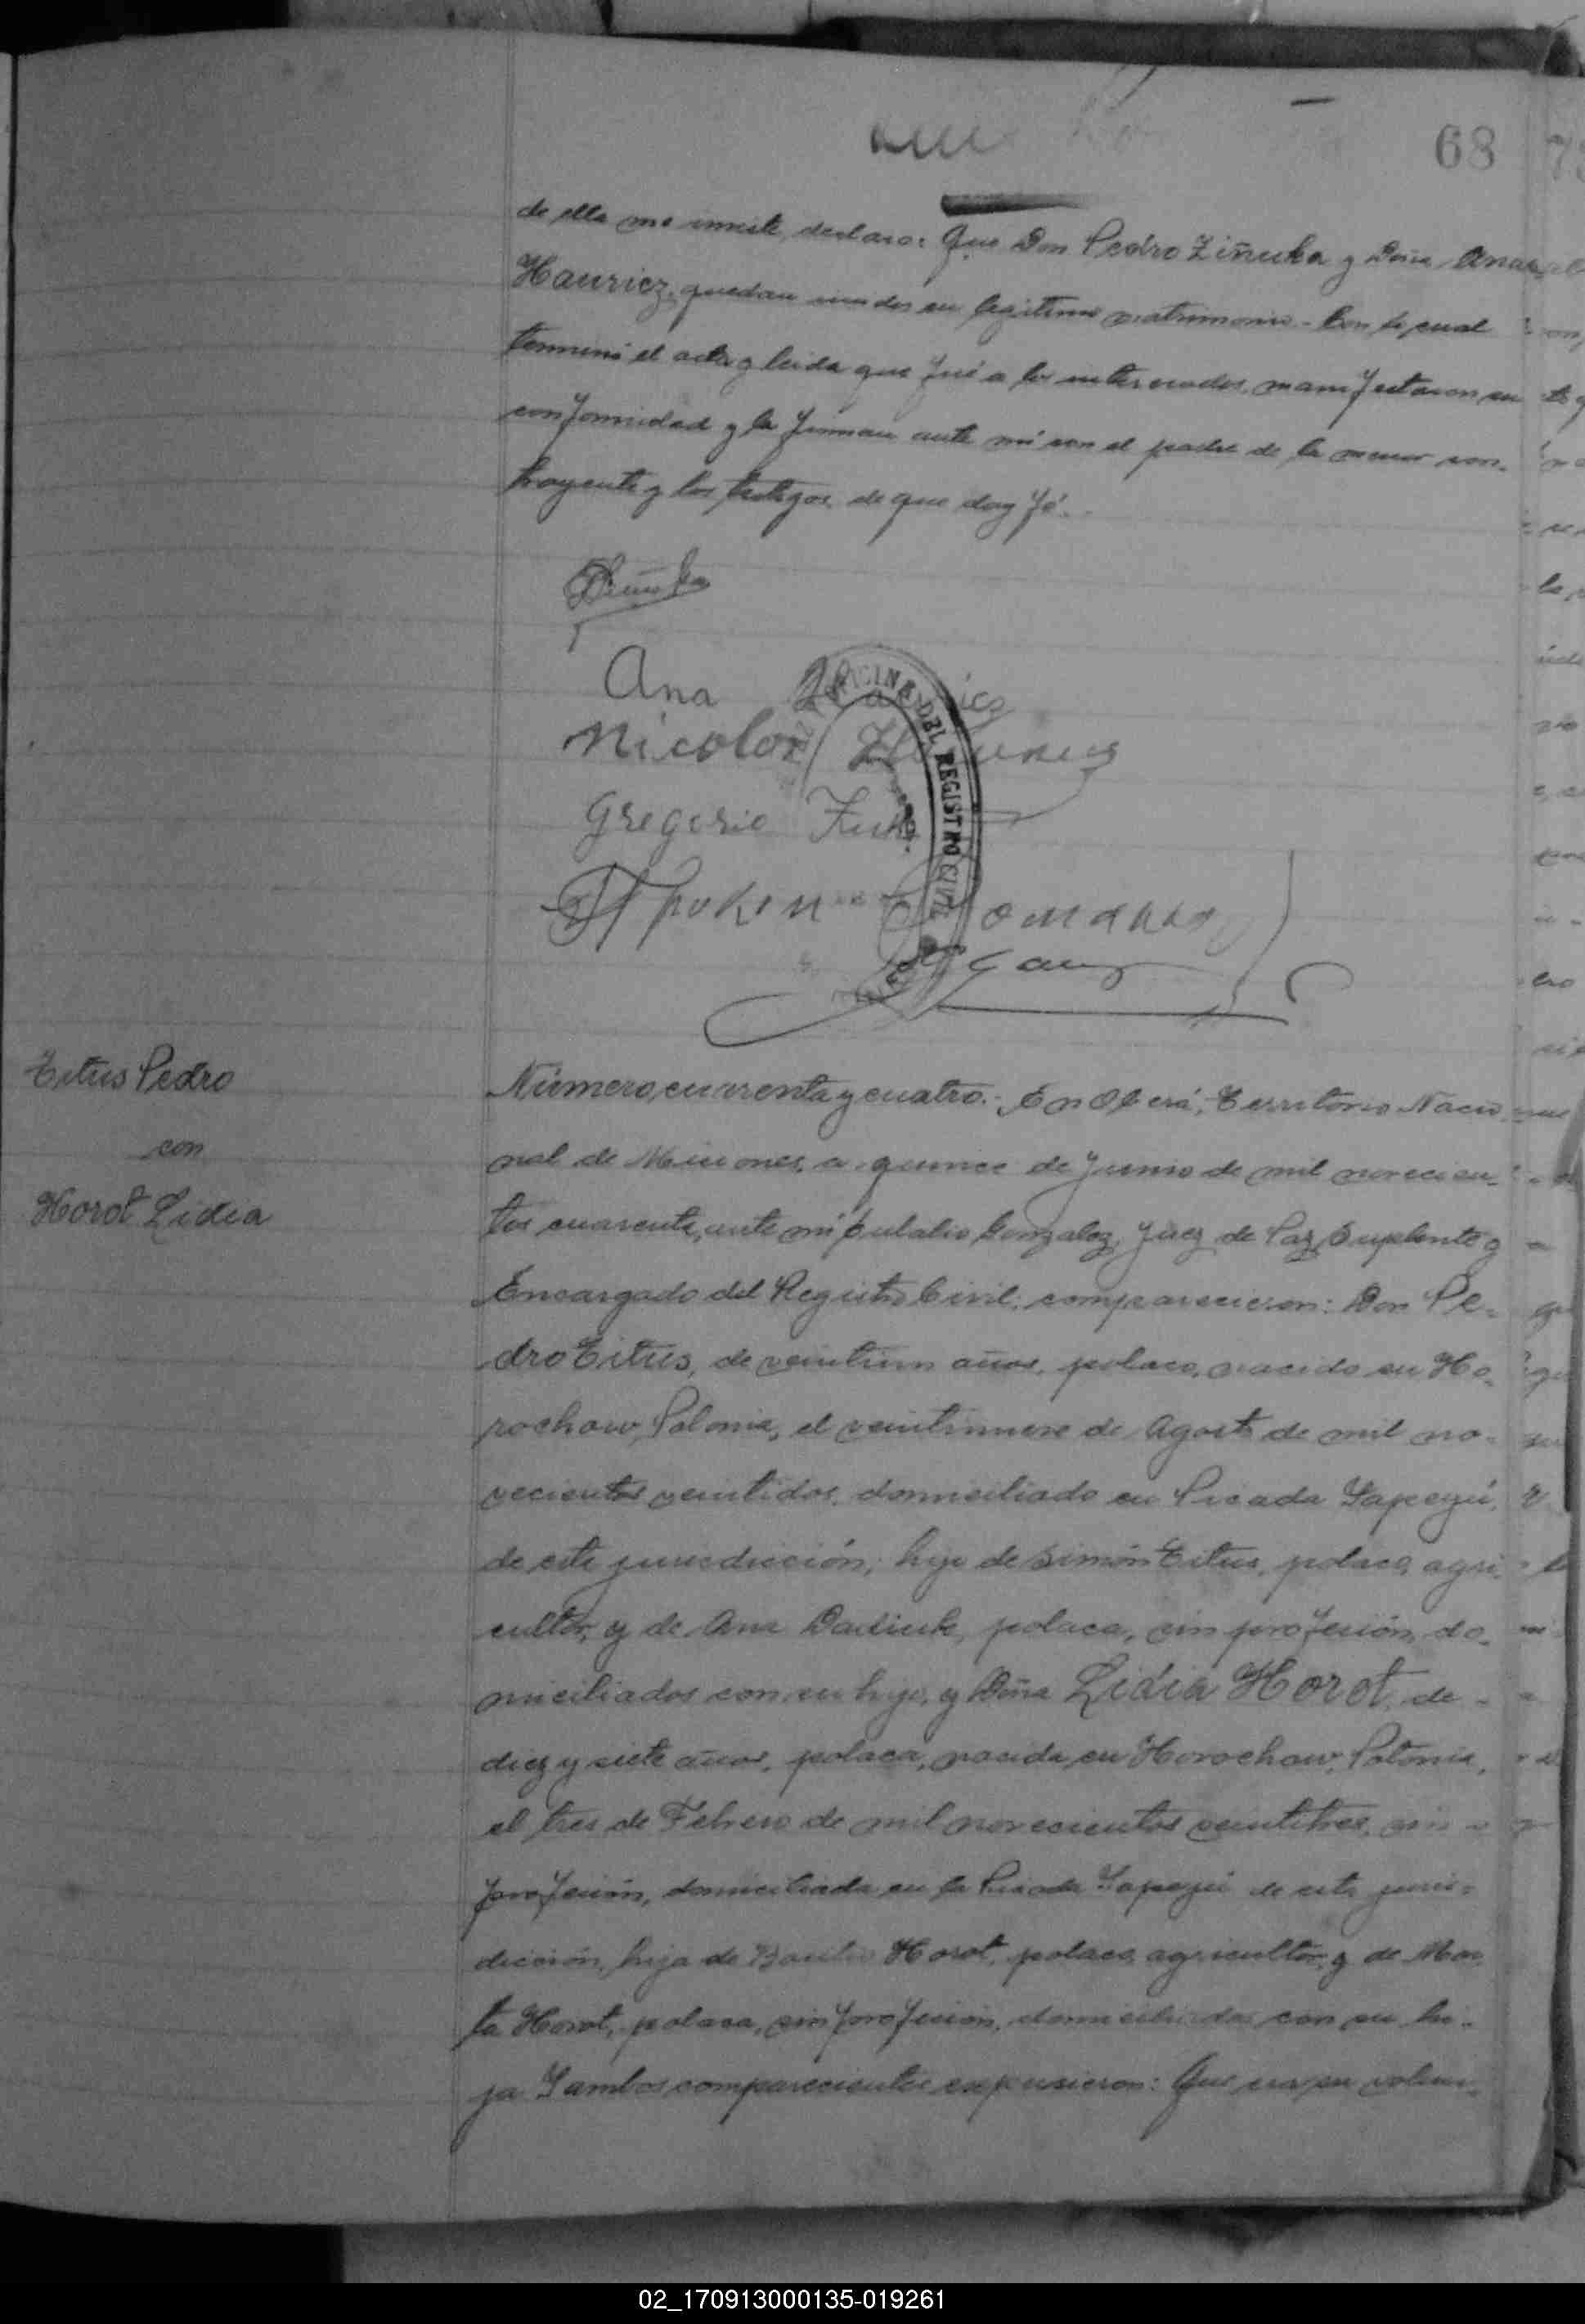 68
de ella me inviste, declaro: Que Don Pedro Ziñuka y Doña Ana
Hauricz, quedan unidos en legítimo matrimonio.- Con lo cual
terminó el acta y leida que fué a los interesados, manifestaron su
conformidad y la firman ante mí con el padre de la menor con-
trayente y los testigos, de que doy fé.
Ana
Nicolos
Gregorio
OFICINA DEL REGISTRO CIVIL
Titus Pedro
con
Horot Lidia
Número cuarenta y cuatro.- En Oberá, Territorio Nacio-
nal de Misiones, a quince de Junio de mil novecien-
tos cuarenta, ante mí Eulalio Gonzalez, Juez de Paz Suplente y
Encargado del Registro Civil, comparecieron: Don Pe-
dro Titus, de veintiun años, polaco, nacido en Ho-
rochow, Polonia, el veintinueve de Agosto de mil no-
vecientos veintidos, domiciliado en Picada Yapeyú,
de esta jurisdicción; hijo de Simón Titus, polaco, agri-
cultor, y de Ana polaca, sin profesión, do-
miciliados con su hijo, y Doña Lidia Horot, de
diez y siete años, polaca, nacida en Horochow, Polonia,
el tres de Febrero de mil novecientos veintitres, sin
profesión, domiciliada en la Picada Yapeyú de esta juris-
dicción, hija de Basilio Horot, polaco, agricultor, y de Mar-
ta Horot, polaca, sin profesión, domiciliados con su hi-
ja. Y ambos comparecientes expusieron: Que era su volun-
02_170913000135-019261